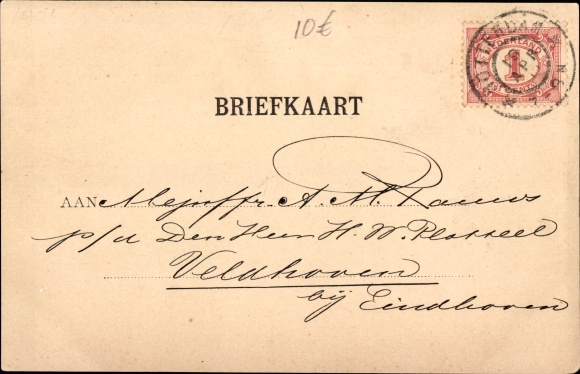 10€
NEDERLAND
1
CENT
ROTTERDAM
APR
BRIEFKAART
AAN Mejuffr. A. M. Rauws
p/a Den Heer H. W. Plotseel
Veldhoven
bij Eindhoven